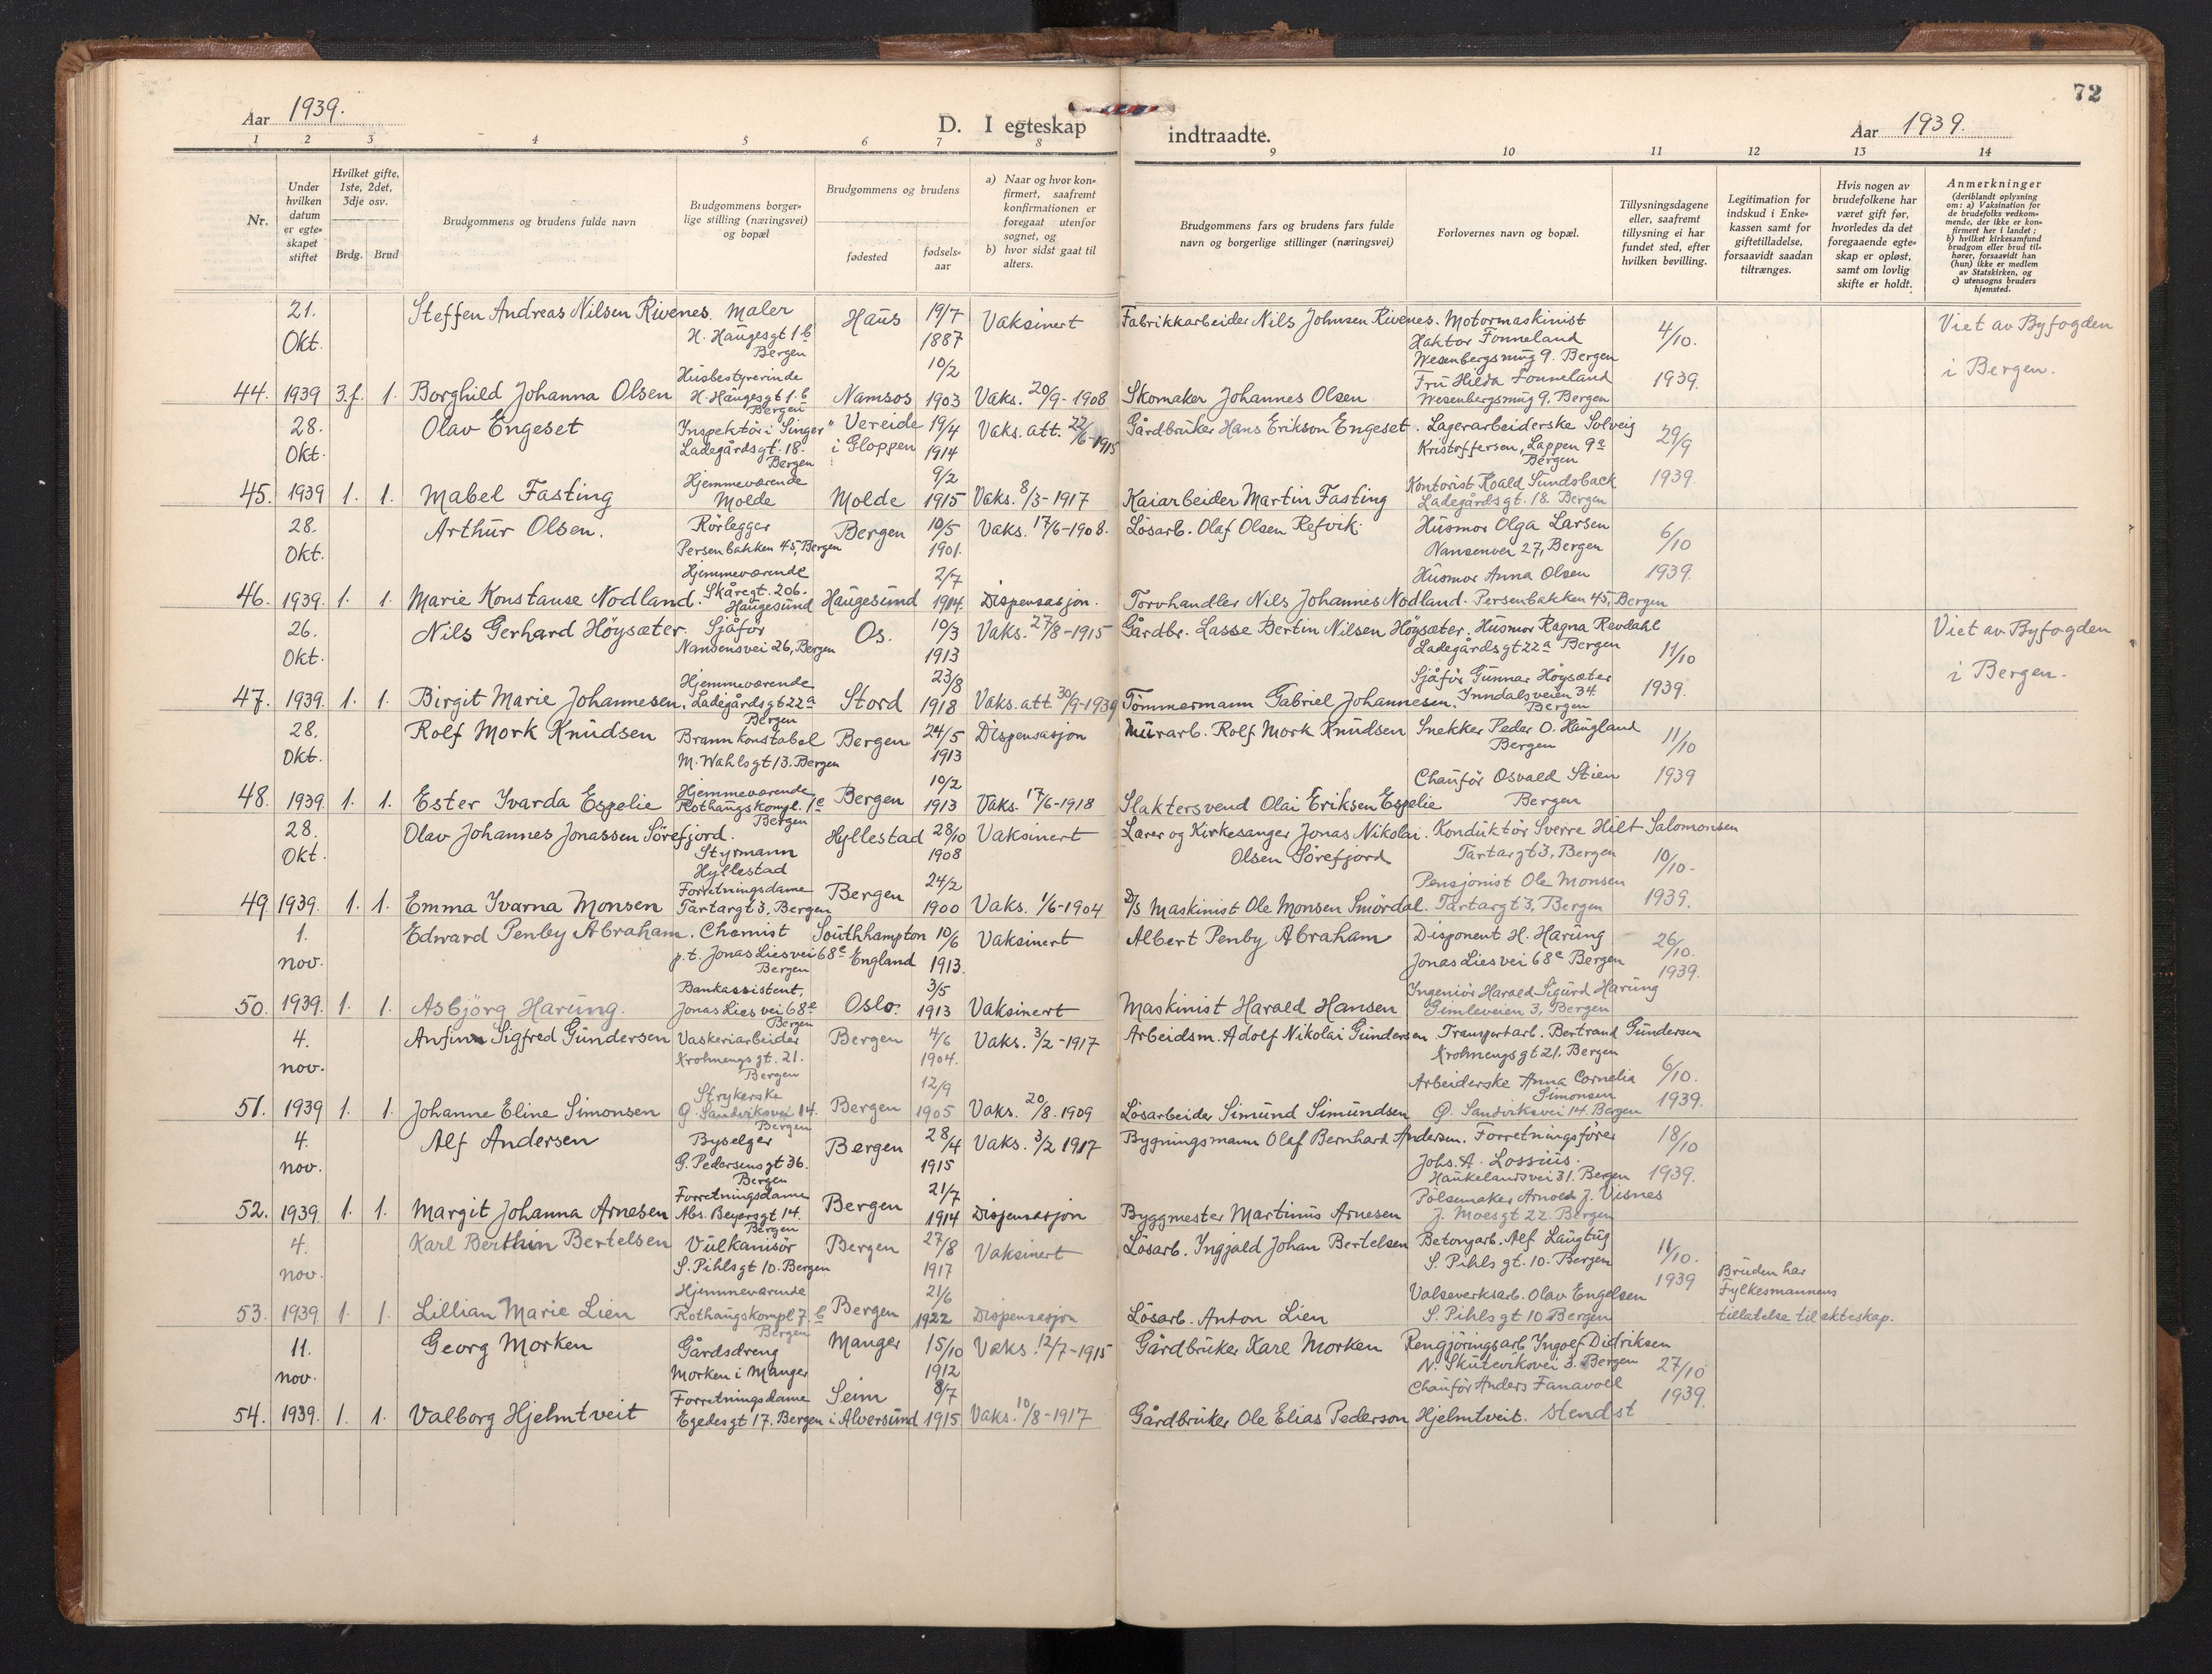 72
Aar 1939.
D. I egteskap indtraadte.
Aar 1939.
1 2 3 4 5 6 7 8 9 10 11 12 13 14
Nr.
Under hvilken datum er egte-skapet stiftet
Hvilket gifte, 1ste, 2det, 3dje osv.
Brdg. Brud
Brudgommens og brudens fulde navn
Brudgommens borger-lige stilling (næringsvei) og bopæl
Brudgommens og brudens
fødested
fødsels-aar
a) Naar og hvor kon-firmert, saafremt konfirmationen er foregaat utenfor sognet, og
b) hvor sidst gaat til alters.
Brudgommens fars og brudens fars fulde navn og borgerlige stillinger (næringsvei)
Forlovernes navn og bopæl.
Tillysningsdagene eller, saafremt tillysning ei har fundet sted, efter hvilken bevilling.
Legitimation for indskud i Enke-kassen samt for giftetilladelse, forsaavidt saadan tiltrænges.
Hvis nogen av brudefolkene har været gift før, hvorledes da det foregaaende egte-skap er opløst, samt om lovlig skifte er holdt.
Anmerkninger (deriblandt oplysning om: a) Vaksination for de brudefolks vedkom-mende, der ikke er kon-firmert her i landet; b) hvilket kirkesamfund brudgom eller brud til-hører, forsaavidt han (hun) ikke er medlem av Statskirken, og c) utensogns bruders hjemsted.
44. 21. Okt. 1939 3.f. 1.
Steffen Andreas Nilsen Rivenes. Maler H. Haugesgt 1b Bergen Haus 19/7 1887 Vaksinert
Fabrikkarbeider Nils Johnsen Rivenes. Motormaskinist Haktor Fonneland Wesenbergsmug 9. Bergen 4/10. 1939.
Viet av Byfogden i Bergen.
Borghild Johanna Olsen Husbestyrerinde H. Haugesgt 1.b Bergen Namsos 10/2 1903 Vaks. 20/9-1908
Skomaker Johannes Olsen Fru Hilda Fonneland Wesenbergsmug 9. Bergen
45. 28. Okt. 1939 1. 1.
Olav Engeset Inspektör i Singer" Ladegårdsgt. 18. Bergen Vereide i Gloppen 19/4 1914 Vaks. att. 22/6-1915
Gårdbruker Hans Erikson Engeset. Lagerarbeiderske Solveig Kristoffersen, Lappen 9a Bergen 29/9 1939.
Mabel Fasting Hjemmeværende Molde Molde 9/2 1915 Vaks. 8/3-1917
Kaiarbeider Martin Fasting Kontorist Roald Sundsback Ladegårdsgt. 18. Bergen
46. 28. Okt. 1939. 1. 1.
Arthur Olsen. Rörlegger Persenbakken 45, Bergen Bergen 10/5 1901. Vaks. 17/6-1908.
Lösarb. Olaf Olsen Refvik. Husmor Olga Larsen Nansenvei 27, Bergen 6/10 1939.
Marie Konstanse Nodland. Hjemmeværende Skåregt. 206. Haugesund Haugesund 2/7 1914. Dispensasjon.
Torvhandler Nils Johannes Nodland. Husmor Anna Olsen Persenbakken 45, Bergen
47. 26. Okt. 1939. 1. 1.
Nils Gerhard Höysæter. Sjåför Nansensvei 26, Bergen Os. 10/3 1913 Vaks. 27/8-1915
Gårdbr. Lasse Bertin Nilsen Höysæter. Husmor Ragna Revdahl Ladegårdsgt 22a Bergen 11/10 1939.
Viet av Byfogden i Bergen.
Birgit Marie Johannesen. Hjemmeværende Ladegårdsgt 22a Bergen Stord 23/8 1918 Vaks. att 30/9-1939
Tömmermann Gabriel Johannesen. Sjåför Gunnar Höysæter Inndalsveien 34 Bergen
48. 28. Okt. 1939. 1. 1.
Rolf Mork Knudsen Brannkonstabel M. Wahlsgt 13. Bergen Bergen 24/5 1913 Dispensasjon
Murarb. Rolf Mork Knudsen Snekker Peder O. Haugland Bergen 11/10 1939
Ester Ivarda Espelie Hjemmeværende Rothaugskompl. 1e Bergen Bergen 10/2 1913 Vaks. 17/6-1918
Slaktersvend Olai Eriksen Espelie Chauför Osvald Stien Bergen
49. 28. Okt. 1939. 1. 1.
Olav Johannes Jonassen Sörefjord. Styrmann Hyllestad Hyllestad 28/10 1908 Vaksinert
Lærer og Kirkesanger Jonas Nikolai Olsen Sörefjord Konduktör Sverre Hilt Salomonsen Tartargt 3, Bergen 10/10- 1939.
Emma Ivarna Monsen Forretningsdame Tartargt 3. Bergen Bergen 24/2 1900 Vaks. 1/6-1904
D/S Maskinist Ole Monsen Smördal. Pensjonist Ole Monsen Tartargt 3, Bergen
50. 1. nov. 1939. 1. 1.
Edward Penby Abraham. Chemist p.t. Jonas Liesvei 68e Bergen Southhampton England 10/6 1913. Vaksinert
Albert Penby Abraham Disponent H. Harung Jonas Liesvei 68e Bergen 26/10. 1939.
Asbjörg Harung. Bankassistent, Jonas Lies vei 68e Bergen Oslo. 3/5 1913 Vaksinert
Maskinist Harald Hansen Ingeniör Harald Sigurd Harung Gimleveien 3, Bergen
51. 4. nov. 1939 1. 1.
Anfinn Sigfred Gundersen Vaskeriarbeider Krohnengs gt. 21. Bergen Bergen 4/6 1904. Vaks. 3/2-1917
Arbeidsm. Adolf Nikolai Gundersen Transportarb. Bertrand Gundersen Krohnengsgt 21. Bergen 6/10. 1939.
Johanne Eline Simonsen Strykerske Ø. Sandviksvei 14. Bergen Bergen 12/9 1905 Vaks. 20/8.1909
Lösarbeider Simund Simundsen Arbeiderske Anna Cornelia Simonsen Ø. Sandviksvei 14. Bergen
52. 4. nov. 1939 1. 1.
Alf Andersen Byselger G. Pedersensgt 36. Bergen Bergen 28/4 1915 Vaks. 3/2 1917
Bygningsmann Olaf Bernhard Andersen. Forretningsfører Johs. A. Lossius. Haukelandsvei 31. Bergen 18/10 1939.
Margit Johanna Arnesen Forretningsdame Abs. Beyersgt 14. Bergen Bergen 21/7 1914 Dispensasjon
Byggmester Martinus Arnesen Pölsemaker Arnold J. Visnes J. Moesgt 22. Bergen
53. 4. nov. 1939 1. 1.
Karl Berthin Bertelsen Vulkanisör S. Pihlsgt 10. Bergen Bergen 27/8 1917 Vaksinert
Lösarb. Ingjald Johan Bertelsen Betongarb. Alf Laugtug S. Pihls gt. 10. Bergen 11/10. 1939
Bruden har Fylkesmannens tillatelse til ekteskap.
Lillian Marie Lien Hjemmeværende Rothaugskompl 7. b Bergen Bergen 21/6 1922 Dispensasjon
Lösarb. Anton Lien Valseverksarb. Olav Engelsen S. Pihls gt 10 Bergen
54. 11. nov. 1939. 1. 1.
Georg Morken Gårdsdreng Morken i Manger Manger 15/10 1912 Vaks. 12/7-1915
Gårdbruker Karl Morken Rengjöringsarb Ingolf Didriksen N. Skuteviksvei 3. Bergen 27/10 1939.
Valborg Hjelmtveit Forretningsdame Egedesgt 17. Bergen Seim i Alversund 8/7 1915 Vaks. 10/8-1917
Gårdbruker Ole Elias Pederson Hjelmtveit. Chauför Anders Fanavoll Stend st